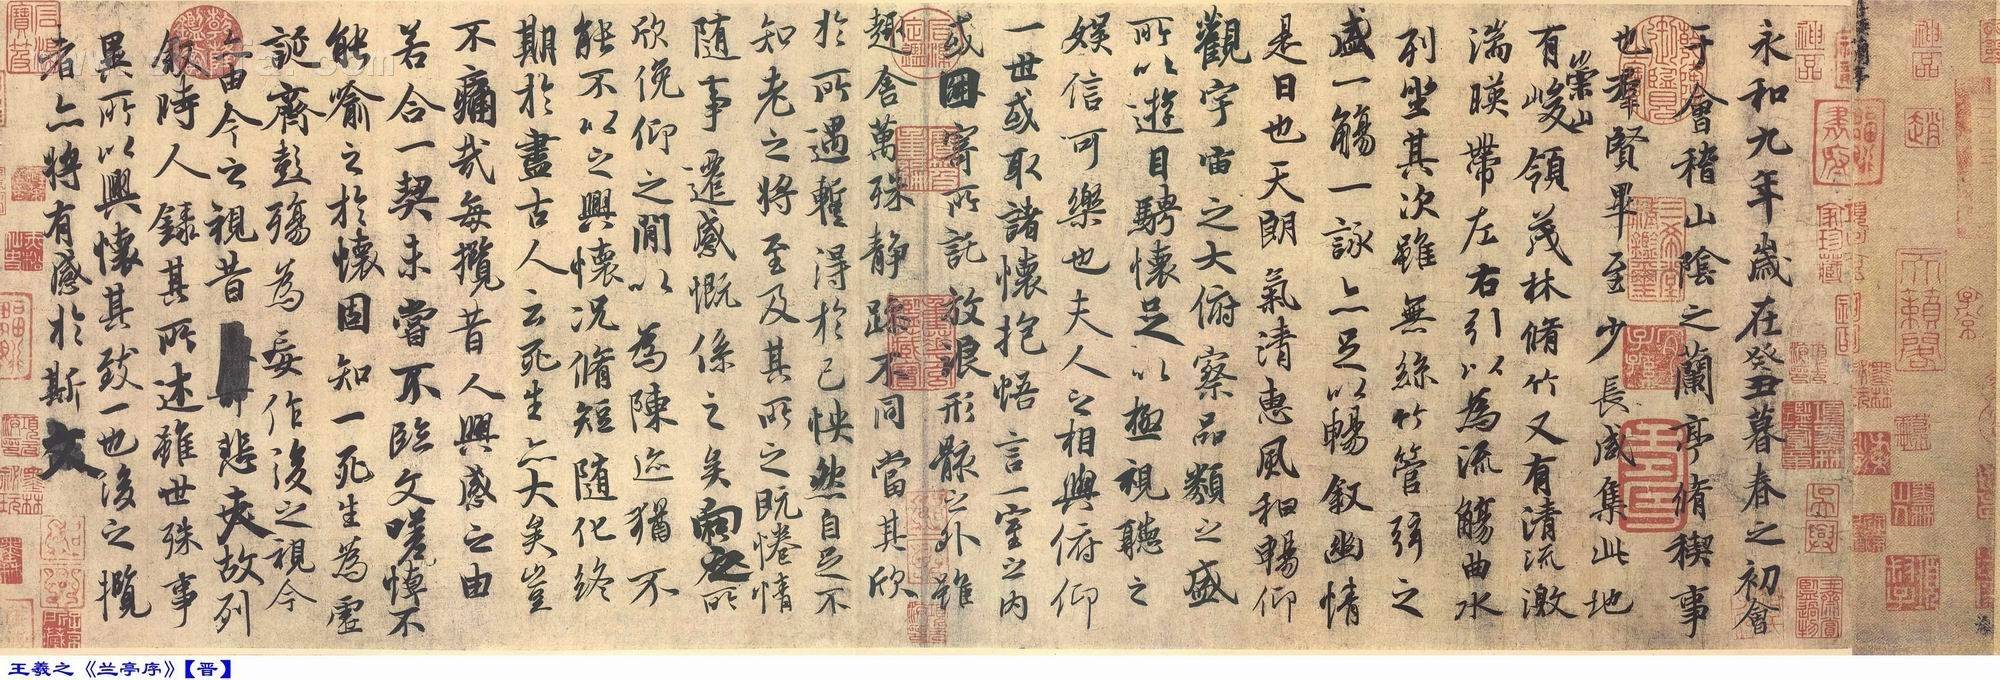 永和九年歲在癸丑暮春之初會
于會稽山陰之蘭亭脩稧事
也羣賢畢至少長咸集此地
有崇山峻領茂林脩竹又有清流激
湍暎帶左右引以為流觴曲水
列坐其次雖無絲竹管弦之
盛一觴一詠亦足以暢敘幽情
是日也天朗氣清惠風和暢仰
觀宇宙之大俯察品類之盛
所以遊目騁懷足以極視聽之
娛信可樂也夫人之相與俯仰
一世或取諸懷抱悟言一室之內
或因寄所託放浪形骸之外雖
趣舍萬殊靜躁不同當其欣
於所遇暫得於己怏然自足不
知老之將至及其所之既惓情
隨事遷感慨係之矣向之所
欣俛仰之閒以為陳迹猶不
能不以之興懷況脩短隨化終
期於盡古人云死生亦大矣豈
不痛哉每攬昔人興感之由
若合一契未嘗不臨文嗟悼不
能喻之於懷固知一死生為虛
誕齊彭殤為妄作後之視今
亦由今之視昔悲夫故列
敘時人錄其所述雖世殊事
異所以興懷其致一也後之攬
者亦將有感於斯文
神品
神品
趙
天籟閣
王羲之《兰亭序》【晋】